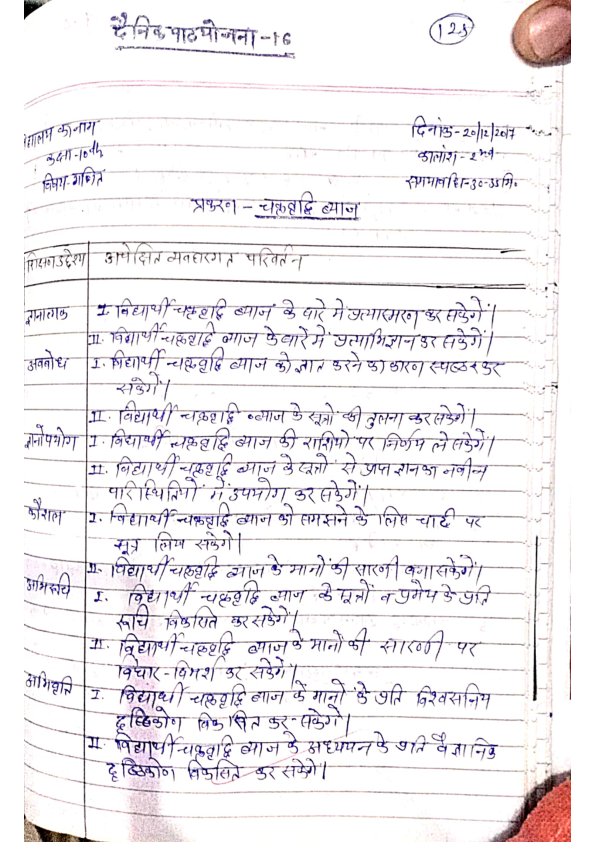 दैनिक पाठयोजना -16
125
विद्यालय का नाम
दिनांक- 20/12/2017
कक्षा-10th
कालांश-
विषय-गणित
समयावधि-30-35मि०
प्रकरण - चक्रवृद्धि ब्याज
शिक्षण उद्देश्य अपेक्षित व्यवहारगत परिवर्तन
ज्ञानात्मक I. विद्यार्थी चक्रवृद्धि ब्याज के बारे में प्रत्यास्मरण कर सकेगें।
II. विद्यार्थी चक्रवृद्धि ब्याज के बारें में प्रत्याभिज्ञान कर सकेगें।
अवबोध I. विद्यार्थी चक्रवृद्धि ब्याज को ज्ञात करने का कारण स्पष्ट कर
सकेगें।
II. विद्यार्थी चक्रवृद्धि ब्याज के सूत्रों की तुलना कर सकेगें।
ज्ञानोपयोग I. विद्यार्थी चक्रवृद्धि ब्याज की राशियो पर निर्णय ले सकेगें।
II. विद्यार्थी चक्रवृद्धि ब्याज के सूत्रों से प्राप्त ज्ञान का नवीन
परिस्थितियों में उपयोग कर सकेगें।
कौशल I. विद्यार्थी चक्रवृद्धि ब्याज को समझने के लिए चार्ट पर
सूत्र लिख सकेगें।
II. विद्यार्थी चक्रवृद्धि ब्याज के मानों की सारणी बना सकेगें।
अभिरूची I. विद्यार्थी चक्रवृद्धि ब्याज के सूत्रों व प्रमेय के प्रति
रूचि विकसित कर सकेगें।
II. विद्यार्थी चक्रवृद्धि ब्याज के मानों की सारणी पर
विचार-विमर्श कर सकेगें।
अभिवृत्ति I. विद्यार्थी चक्रवृद्धि ब्याज के मानों के प्रति विश्वसनिय
दृष्टिकोण विकसित कर सकेगें।
II. विद्यार्थी चक्रवृद्धि ब्याज के अध्ययन के प्रति वैज्ञानिक
दृष्टिकोण विकसित कर सकेगें।